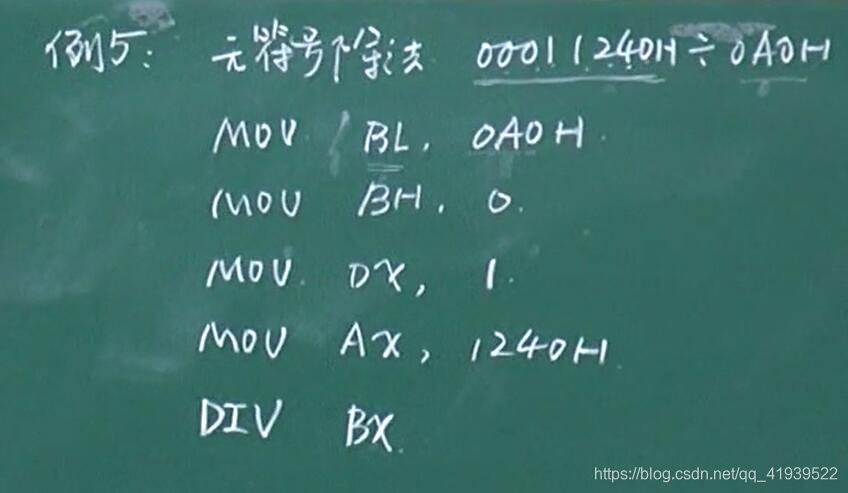 例5: 无符号除法 00011240H ÷ 0A0H
MOV BL, 0A0H.
MOV BH, 0.
MOV DX, 1.
MOV AX, 1240H.
DIV BX.
https://blog.csdn.net/qq_41939522